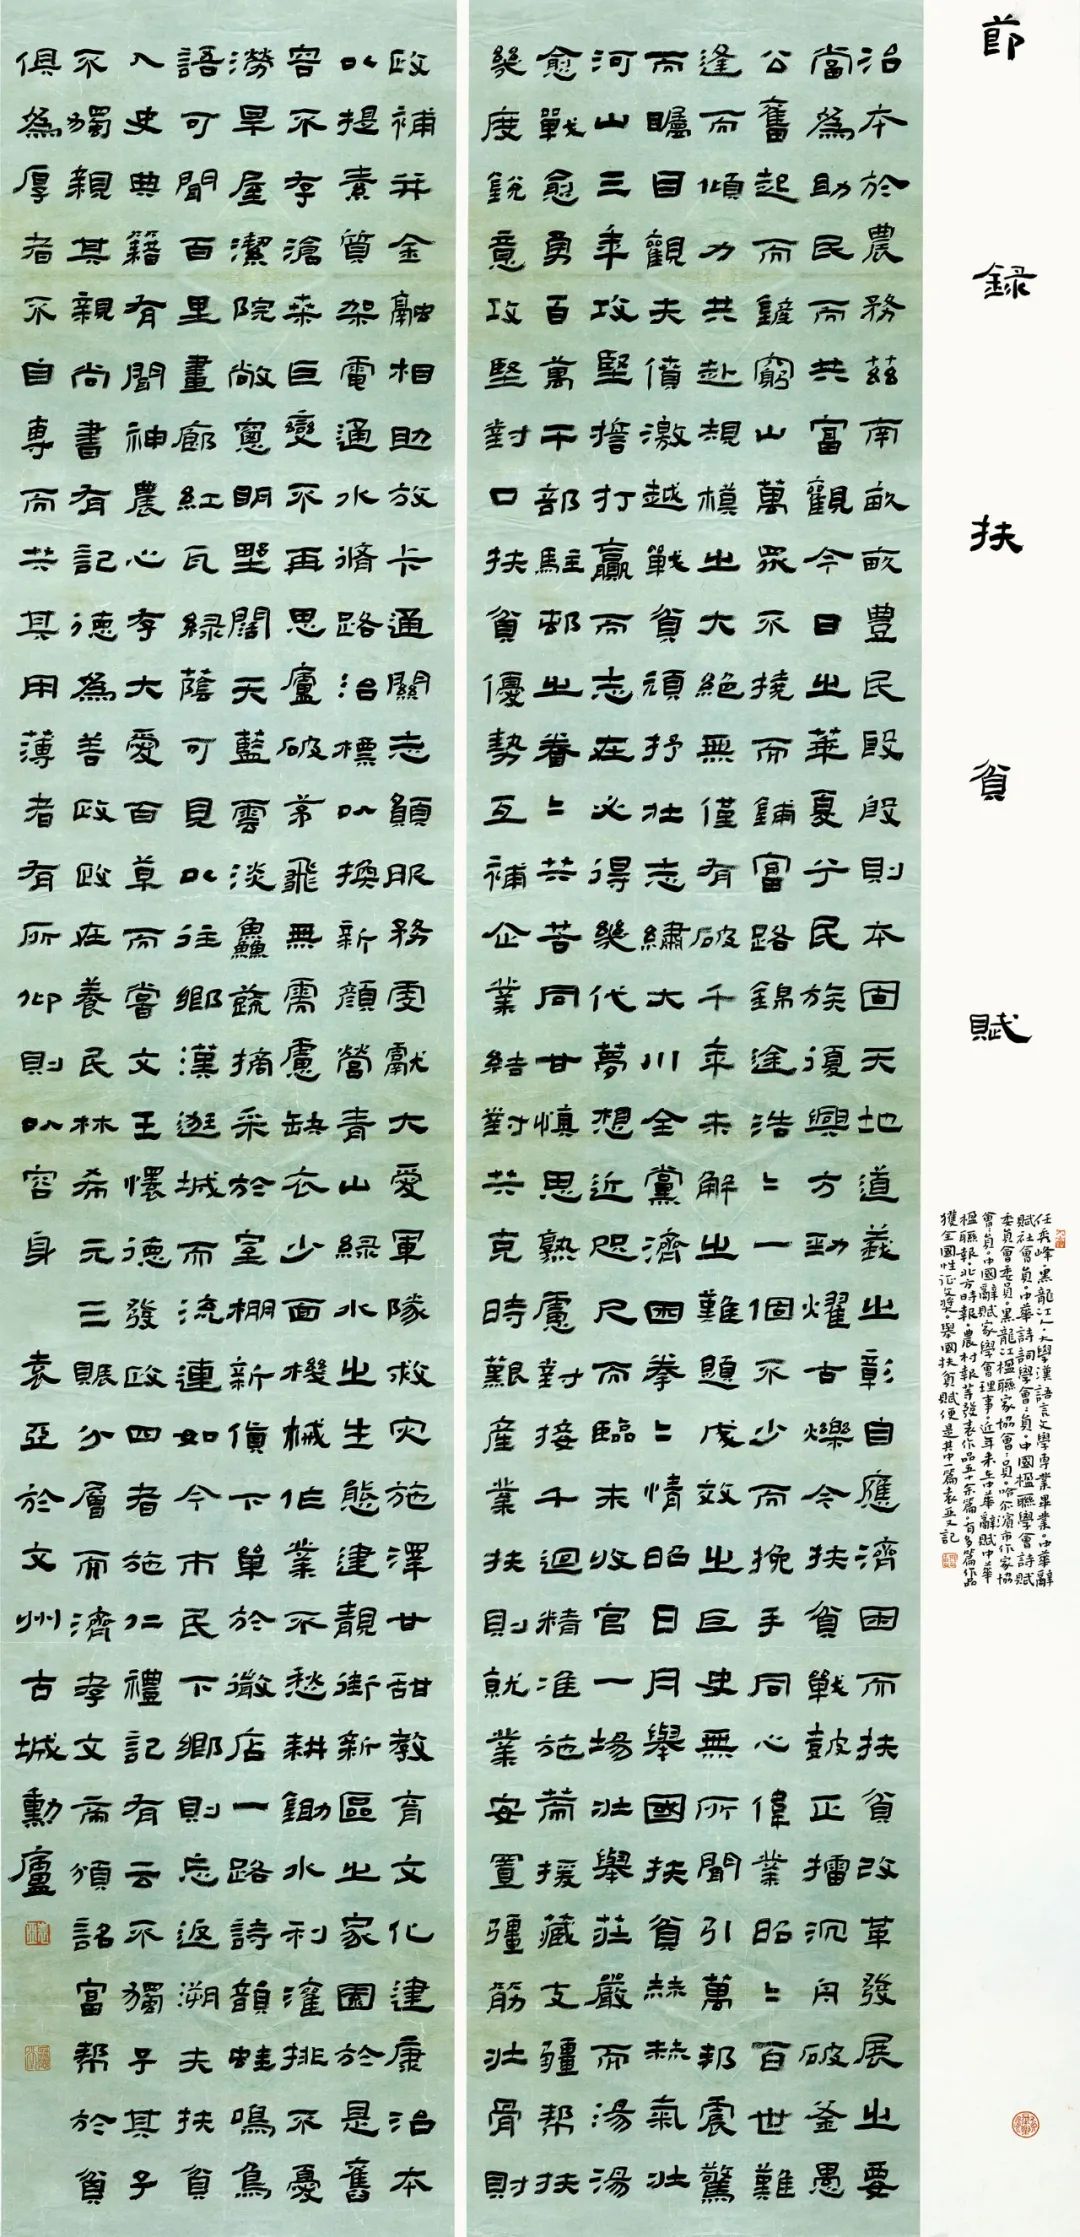 節錄扶貧賦
任兵峰。黑龍江人。大學漢語言文學專業畢業。中華辭
賦社會員。中華詩詞學會二員。中國楹聯學會詩賦
委員會委員。黑龍江楹聯家協會二員。哈尔濱市作家協
會二員。中國辭賦家學會理事。近年来在中華辭賦中華
楹聯報。北方時報。農村報等發表作品五十余篇。有多篇作品
獲全國性征文獎。舉國扶貧賦便是其中一篇袁亚又記
治本於農務茲南畝畝豊民殷殷則本固天地道義之彰自應濟困而扶貧改革發展之要
當為助民而共富觀今日之華夏兮民族復興方勁燿古爍今扶貧戰鼓正擂沉舟破釜愚
公舊起而鏟窮山萬眾不撓而鋪富路錦途浩二一個不少而挽手同心偉業昭二百世難
逢而傾力共赴規模之大絕無僅有破千年未解之難題成效之巨史無所聞引萬邦震驚
而矚目觀夫僨激越戰貧頑抒壯志繡大川全黨濟困拳二情昭日月舉國扶貧赫赫氣壯
河山三年攻堅擔打贏而志在必得幾代夢想近咫尺而臨末收官一場壯舉莊嚴而湯湯
愈戰愈勇百萬干部駐邨之眷二共苦同甘慎思熟慮對接千迴精准施茦援藏支疆幫扶
幾度銳意攻堅對口扶貧優勢互補企業結對共克時艱產業扶則就業安置彊筋壯骨則
政補并金融相助放卡通關志願服務雯獻大愛軍隊救灾施澤甘甜教育文化建康治本
以提素質架電通水脩路治標以換新顏營青山綠水之生態建靚街新區之家園於是舊
容不存滄桒巨變不再思廬破茅飛無需慮缺衣少面機械作業不愁耕鋤水利灌排不憂
澇旱屋潔院敞窻明墅闊天藍雲淡鱻蔬摘采於室棚新貨下單於微店一路詩韻蛙鳴鳥
語可聞百里畫廊紅瓦綠蔭可見以往鄉漢逛城而流連如今市民下鄉則忘返溯夫扶貧
入史典籍有聞神農心存大愛百草而嘗文王懷德發政四者施仁禮記有云不獨子其子
不獨親其親尚書有記德為善政政在養民林希元三賑分層而濟孝文帝頒詔富幫於貧
俱為厚者不自專而共其用薄者有所仰則以容身 袁亞於文州古城勳廬